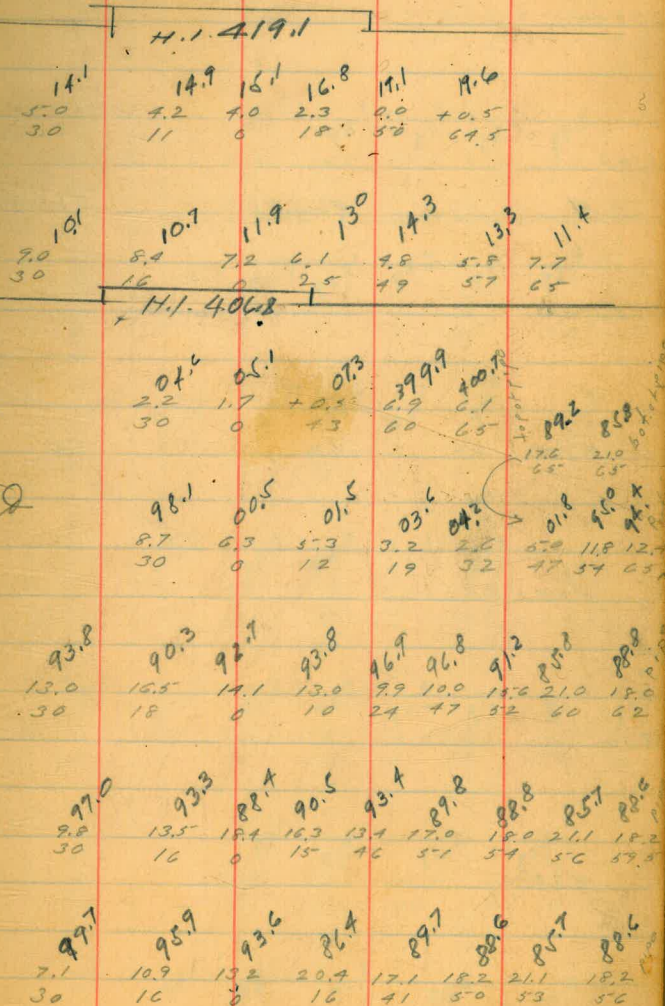 H.I. 419.1
14.1 14.9 15.1 16.8 19.1 19.6
5.0 4.2 4.0 2.3 0.0 +0.5
30 11 0 18 50 64.5
10.1 10.7 11.9 13.0 14.3 13.3 11.4
9.0 8.4 7.2 6.1 4.8 5.8 7.7
30 16 0 25 49 57 65
H.I. 406.8
04.6 05.1 07.3 399.9 400.7
2.2 1.7 +0.5 6.9 6.1
30 0 43 60 65
89.2 85.8
17.6 21.0
65 65
98.1 00.5 01.5 03.6 04.2 01.8 95.0 94.4
8.7 6.3 5.3 3.2 2.6 5.0 11.8 12.4
30 0 12 19 32 47 54 65
93.8 90.3 92.7 93.8 96.9 96.8 91.2 85.8 88.8
13.0 16.5 14.1 13.0 9.9 10.0 15.6 21.0 18.0
30 18 0 10 24 47 52 60 62
97.0 93.3 88.4 90.5 93.4 89.8 88.8 85.7 88.6
9.8 13.5 18.4 16.3 13.4 17.0 18.0 21.1 18.2
30 16 0 15 46 51 54 56 59.5
99.7 95.9 93.6 86.4 89.7 88.6 85.7 88.6
7.1 10.9 13.2 20.4 17.1 18.2 21.1 18.2
30 16 0 16 41 50 53 56